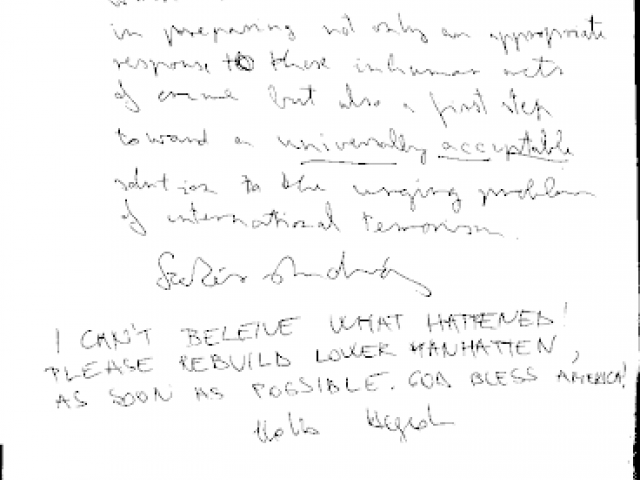 in preparing not only an appropriate
response to these inhuman acts
of crime but also a first step
toward a universally acceptable
solution to the urging problem
of international terrorism.
I CAN'T BELEIVE WHAT HAPPENED!
PLEASE REBUILD LOWER MANHATTEN,
AS SOON AS POSSIBLE. GOD BLESS AMERICA!